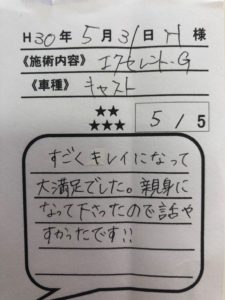 H30年5月31日 H 様
《施術内容》エクセレント・G
《車種》キャスト
★★
★★★
5 / 5
すごくキレイになって
大満足でした。親身に
なって下さったので話や
すかったです!!